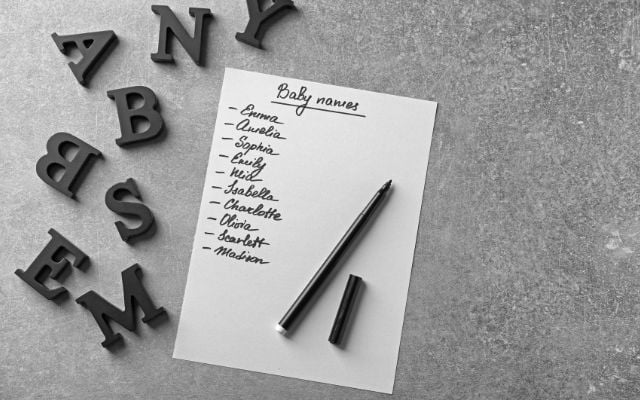 A N Y
B
B
S
E M
Baby names
- Emma
- Amelia
- Sophia
- Emily
- Mia
- Isabella
- Charlotte
- Olivia
- Scarlett
- Madison